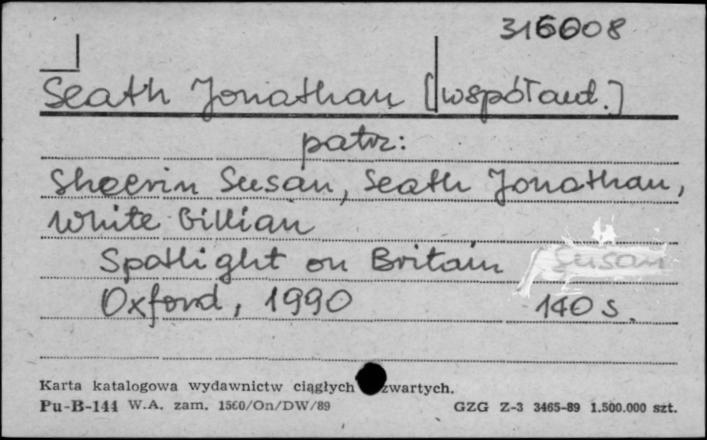 316008
Seath Jonathan [współaut.]
patrz:
Sheerin Susan, Seath Jonathan,
White Gillian
Spotlight on Britain Susan
Oxford, 1990 140 s.
Karta katalogowa wydawnictw ciągłych zwartych.
Pu-B-144 W.A. zam. 1560/On/DW/89 GZG Z-3 3465-89 1.500.000 szt.